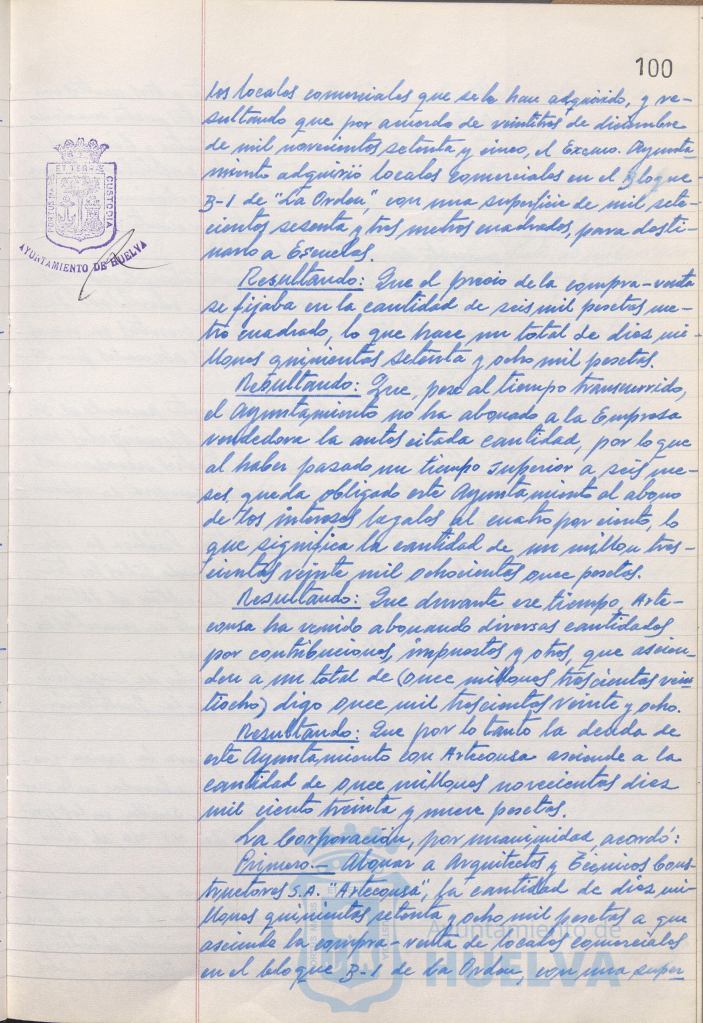 100
los locales comerciales que se le han adquirido, y re-
sultando que por acuerdo de veintitrés de diciembre
de mil novecientos setenta y cinco, el Excmo. Ayunta-
miento adquirió locales comerciales en el Bloque
B-1 de "La Orden", con una superficie de mil sete-
cientos sesenta y tres metros cuadrados, para desti-
narlo a Escuelas.
Resultando: Que el precio de la compra-venta
se fijaba en la cantidad de seis mil pesetas me-
tro cuadrado, lo que hace un total de diez mi-
llones quinientas setenta y ocho mil pesetas.
Resultando: Que, pese al tiempo transcurrido,
el Ayuntamiento no ha abonado a la Empresa
vendedora la antes citada cantidad, por lo que
al haber pasado un tiempo superior a seis me-
ses queda obligado este Ayuntamiento al abono
de los intereses legales al cuatro por ciento, lo
que significa la cantidad de un millon tres-
cientas veinte mil ochocientas once pesetas.
Resultando: Que durante ese tiempo, Arte-
consa ha venido abonando diversas cantidades
por contribuciones, impuestos y otros, que ascien-
den a un total de (once millones trescientos vein
tiocho) digo once mil trescientos veinte y ocho.
Resultando: Que por lo tanto la deuda de
este Ayuntamiento con Arteconsa asciende a la
cantidad de once millones novecientas diez
mil ciento treinta y nueve pesetas.
La Corporación, por unanimidad, acordó:
Primero.- Abonar a Arquitectos y Técnicos Cons-
tructores S.A. "Arteconsa", la cantidad de diez mi-
llones quinientas setenta y ocho mil pesetas a que
asciende la compra-venta de locales comerciales
en el bloque B-1 de La Orden, con una super
CUSTODIA
AYUNTAMIENTO DE HUELVA
Ayuntamiento de
HUELVA